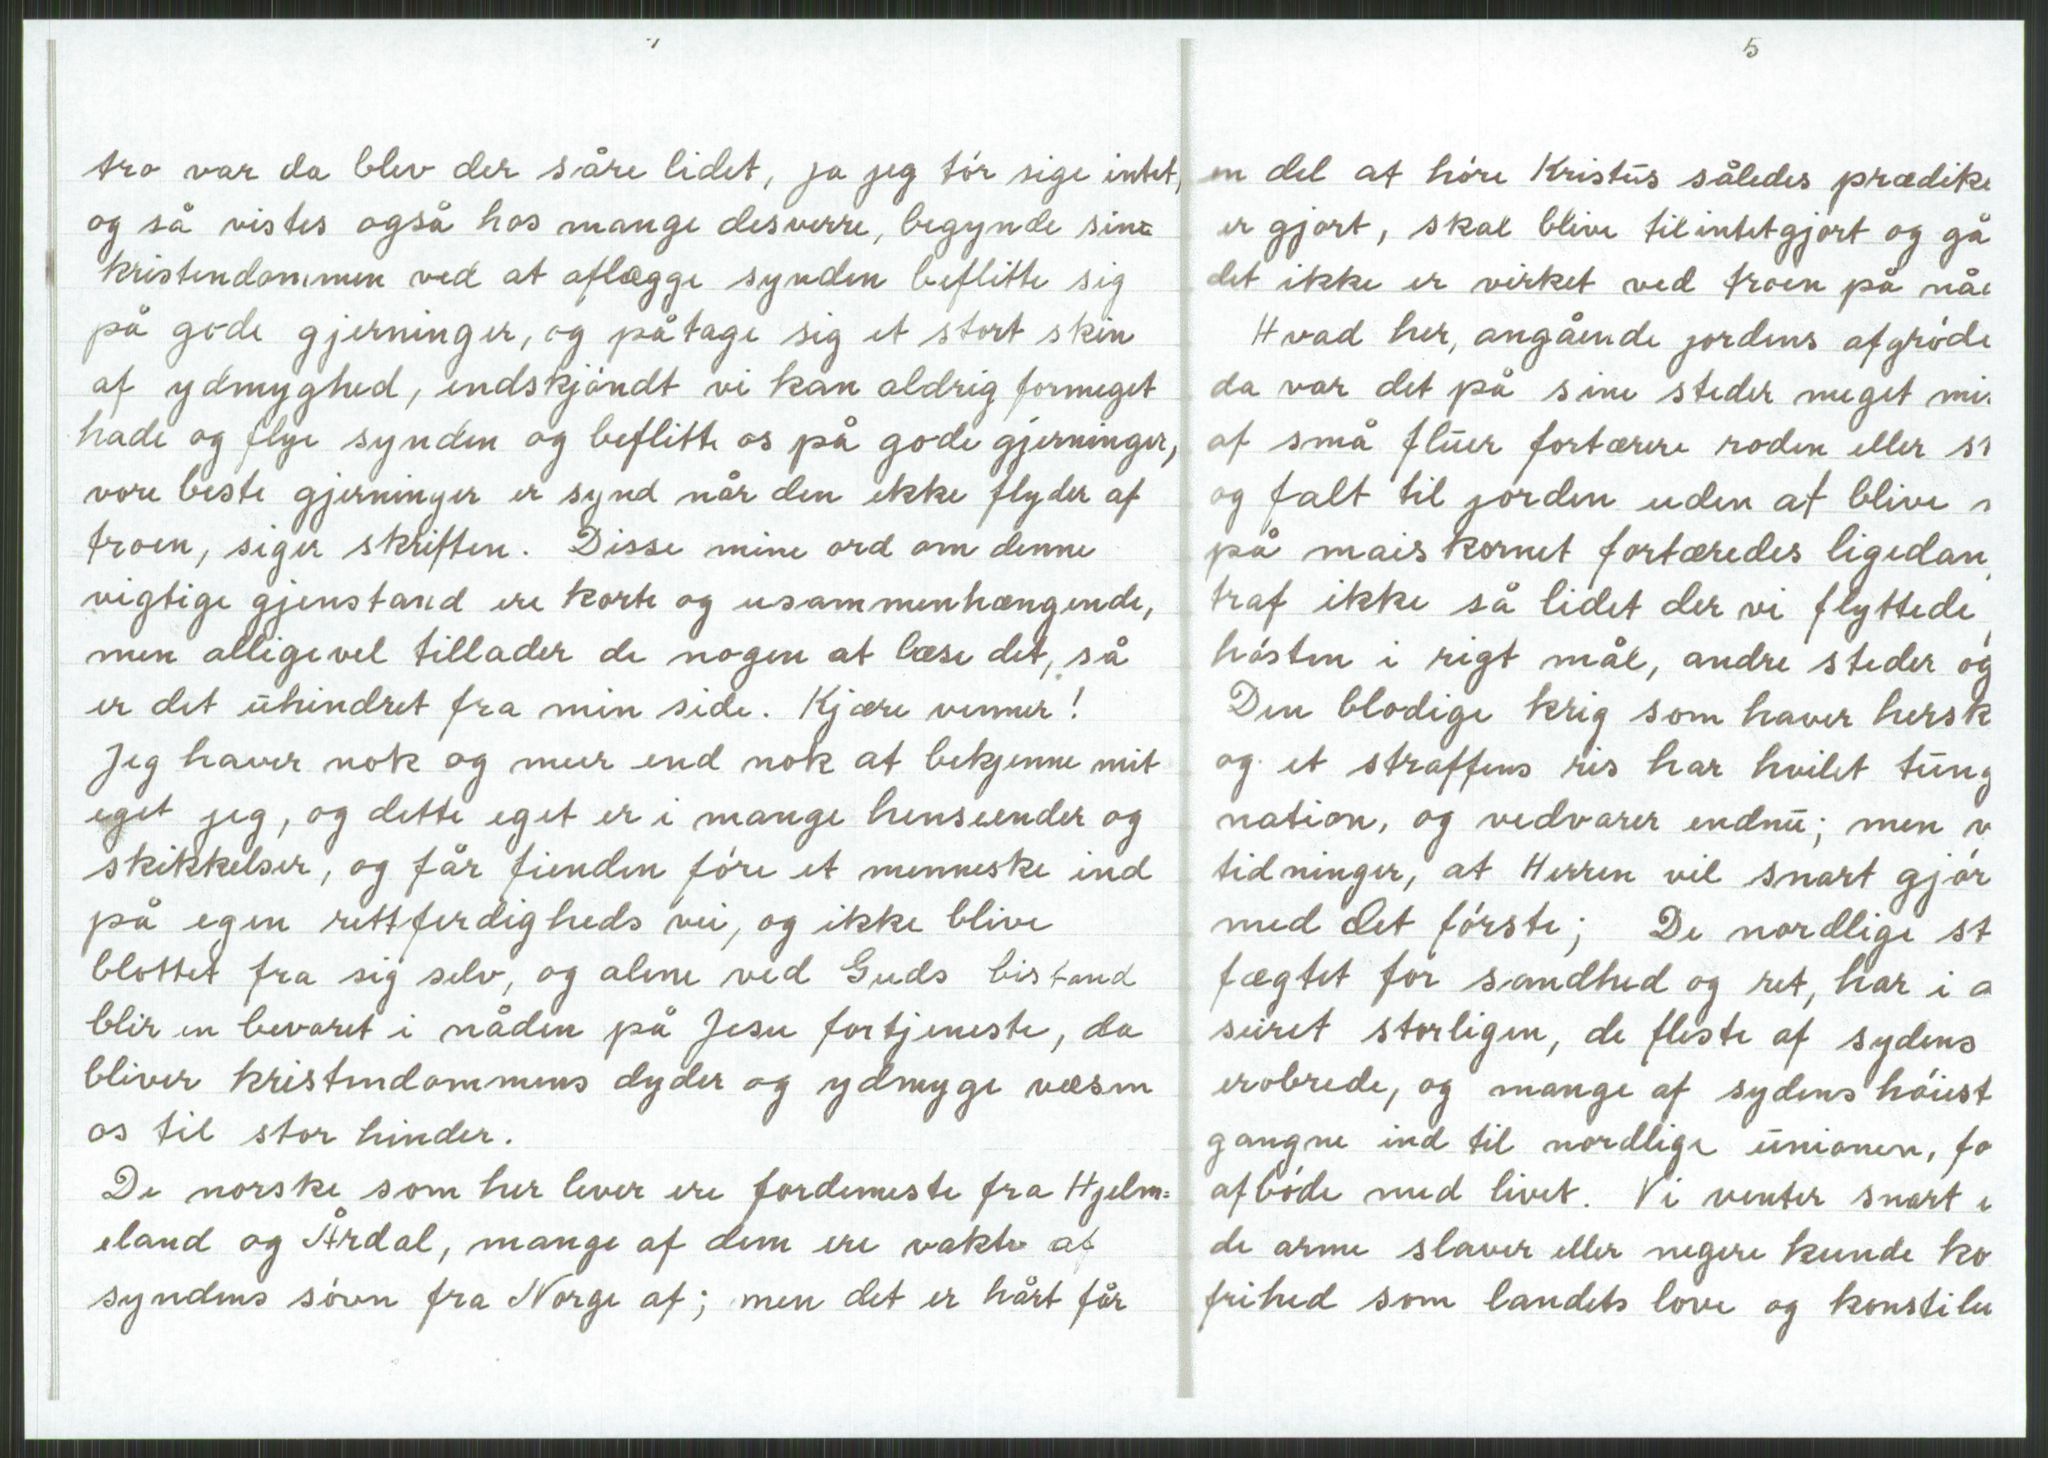 tro var da blev der såre lidet, ja jeg tór sige intet,
og så vistes også hos mange desverre, begynde sin=
kristendommen ved at aflægge synden beflitte sig
på gode gjerninger, og påtage sig et stort skin
af ydmyghed, endskjóndt vi kan aldrig formeget
hade og flye synden og beflitte os på gode gjerninger,
vore beste gjerninger er synd når den ikke flyder af
troen, siger skriften. Disse mine ord om denne
vigtige gjenstand ere korte og usammenhængende,
men alligevel tillader de nogen at læse det, så
er det ūhindret fra min side. Kjære venner!
Jeg haver nok og meer end nok at bekjenne mit
eget jeg, og dette eget er i mange henseender og
skikkelser, og får fienden fóre et menneske ind
på egen rettferdigheds vei, og ikke blive
blottet fra sig selv, og alene ved Guds bistand
blir en bevaret i nåden på Jesu fortjeneste, da
bliver kristendommens dyder og ydmyge væsen
os til stor hinder.
De norske som her lever ere fordemeste fra Hjelm=
eland og Årdal, mange af dem ere vakte af
syndens sóvn fra Norge af; men det er hårt får
5
en del at hóre Kristūs således prædike
er gjort, skal blive tilintetgjort og gå
det ikke er virket ved troen på nåe
Hvad her, angående jordens afgróde
da var det på sine steder meget mi
af små flūer fortærere roden eller st
og falt til jorden uden at blive
på maiskornet fortæredes ligedan
traf ikke så lidet der vi flyttede,
hósten i rigt mål, andre steder og
Den blodige krig som haver hersk
og et straffens ris har hvilet tūng
nation, og vedvarer endnū; men v
tidninger, at Herren vil snart gjór
med det fórste; De nordlige st
fægtet fór sandhed og ret, har i a
seiret storligen, de fleste af sydens
erobrede, og mange af sydens hóiest
gangne ind til nordlige ūnionen, fo
afbóde med livet. Vi venter snart e
de arme slaver eller negere kunde ko
frihed som landets love og konstitu